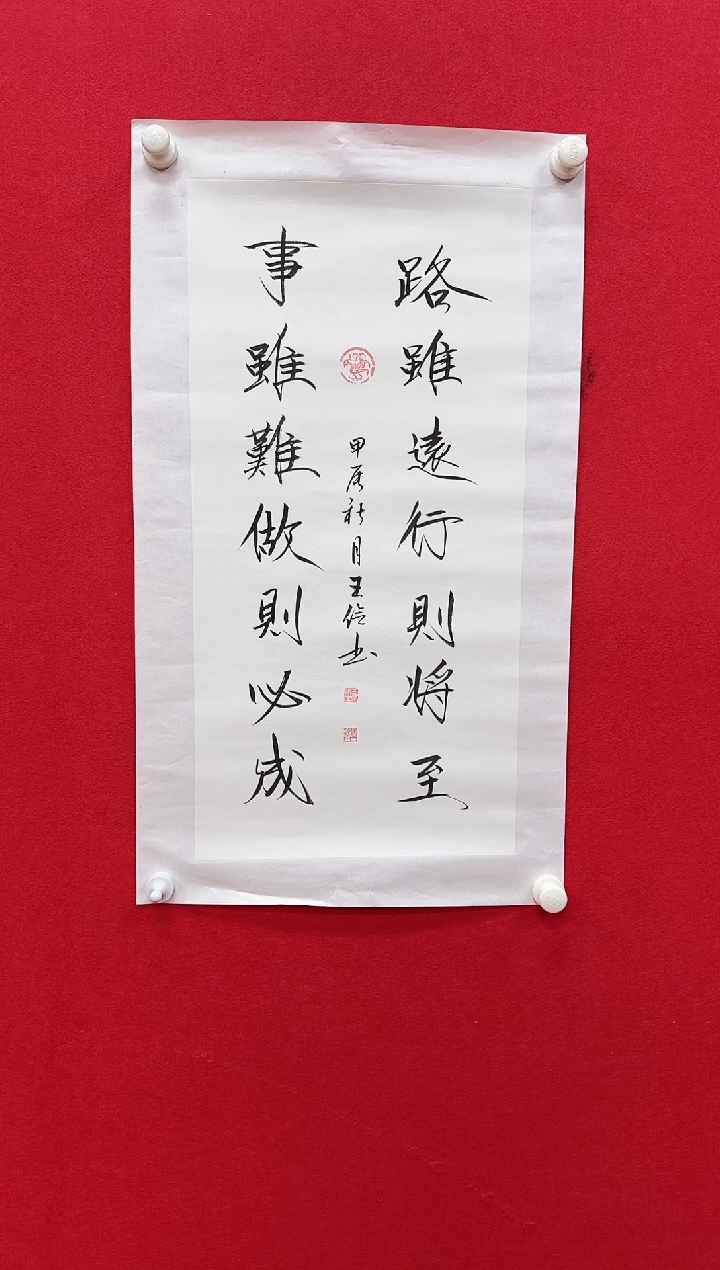 路雖遠行則将至
事雖難做則必成
甲辰秋月王俭书